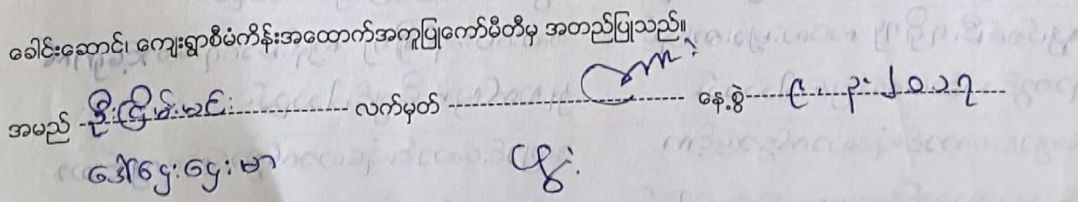 ခေါင်းဆောင်၊ ကျေးရွာစီမံကိန်းအထောက်အကူပြုကော်မီတီမှ အတည်ပြုသည်။
အမည် ဦးငြိမ်းဝင်း လက်မှတ် နေ့စွဲ
ဒေါ်ဌေးဌေးမာ